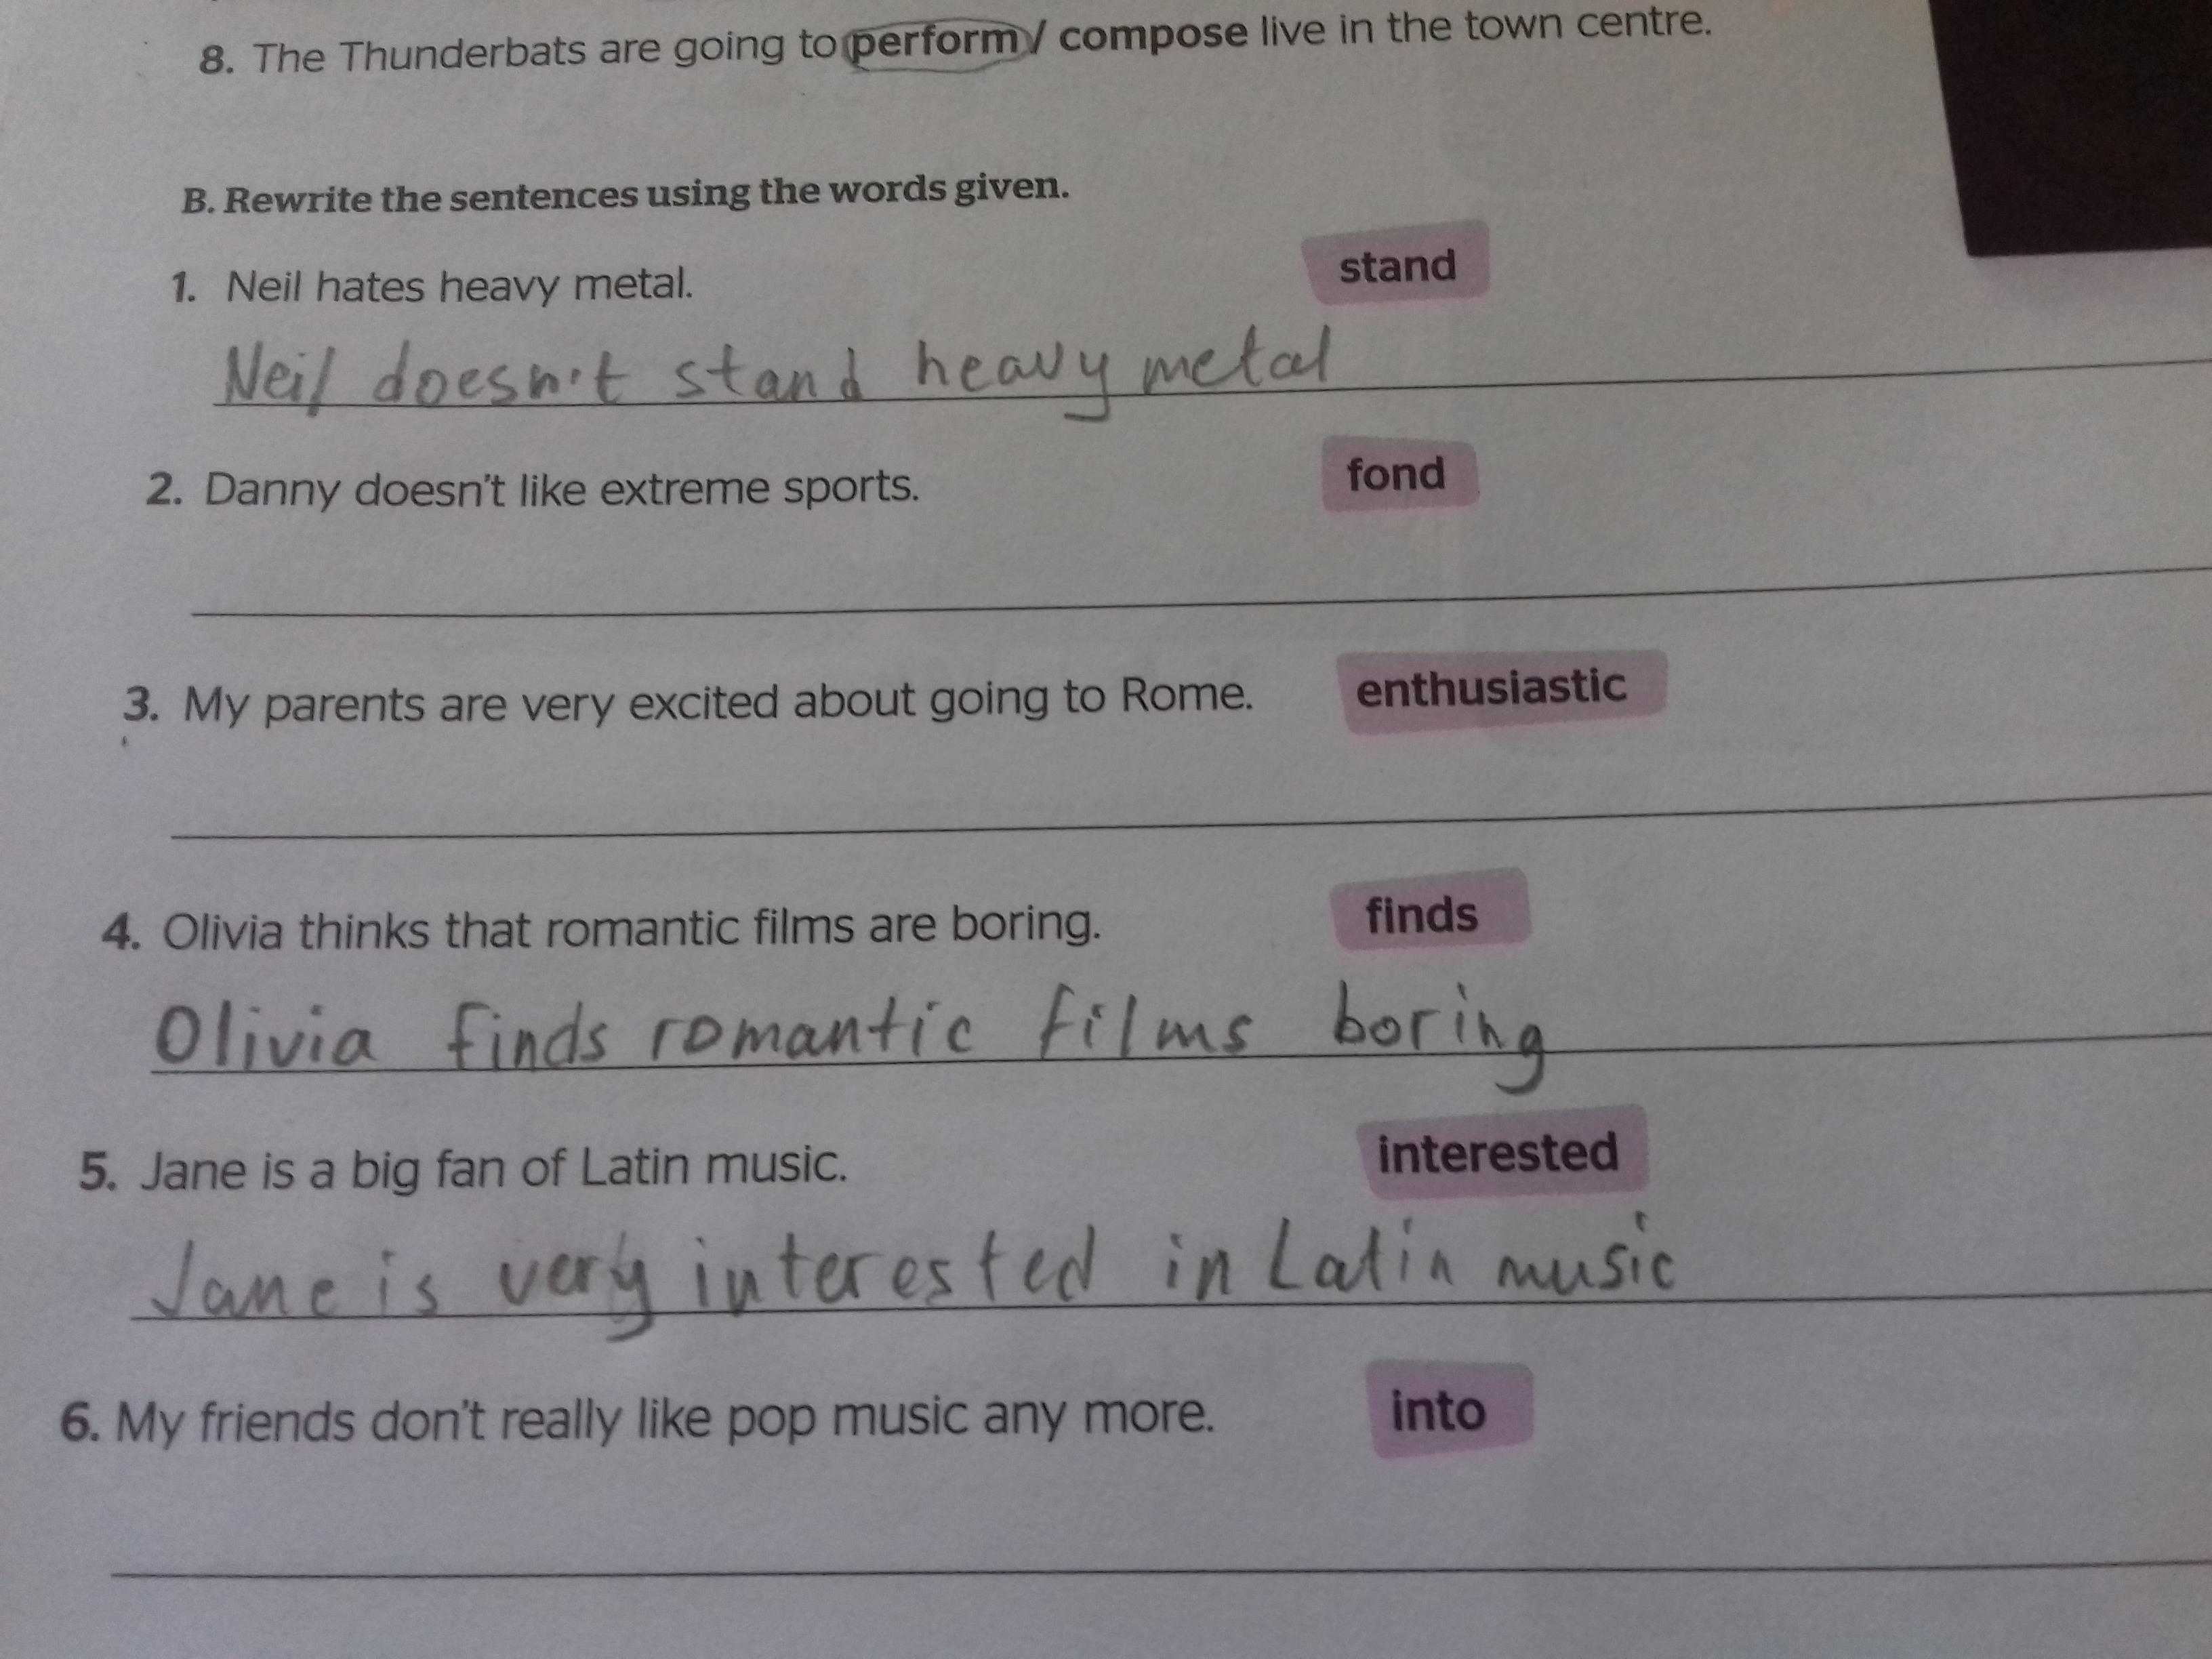 8. The Thunderbats are going to perform / compose live in the town centre.
B. Rewrite the sentences using the words given.
1. Neil hates heavy metal. stand
Neil doesn't stand heavy metal
2. Danny doesn't like extreme sports. fond
3. My parents are very excited about going to Rome. enthusiastic
4. Olivia thinks that romantic films are boring. finds
Olivia finds romantic films boring
5. Jane is a big fan of Latin music. interested
Jane is very interested in Latin music
6. My friends don't really like pop music any more. into